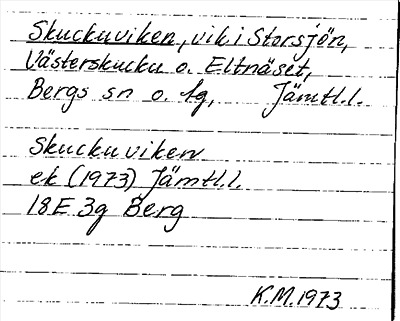 Skuckuviken, vik i Storsjön,
Västerskucku o. Eltnäset,
Bergs sn o. fg, Jämtl.l.
Skuckuviken
ek (1973) Jämtl.l.
18E 3g Berg
K.M.1973